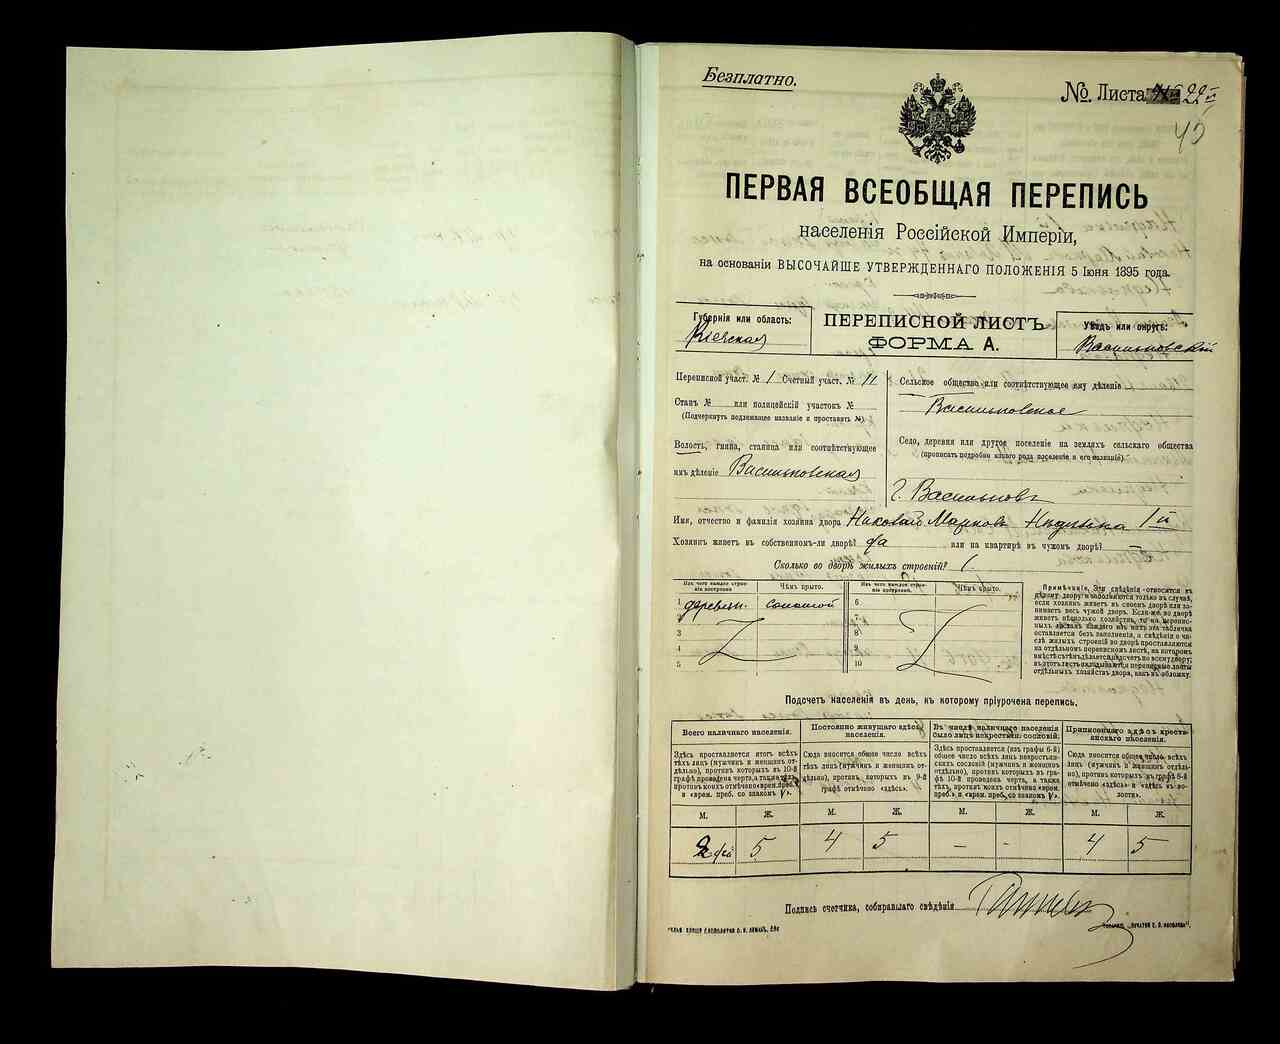 Безплатно.
№ Листа 22
45
ПЕРВАЯ ВСЕОБЩАЯ ПЕРЕПИСЬ
населенія Россійской Имперіи,
на основаніи ВЫСОЧАЙШЕ УТВЕРЖДЕННАГО ПОЛОЖЕНІЯ 5 Іюня 1895 года.
Губернія или область:
Кіевская
ПЕРЕПИСНОЙ ЛИСТЪ
ФОРМА А.
Уѣздъ или округъ:
Васильковскій
Переписной участ. № 1 Счетный участ. № 11
Станъ № или полицейскій участокъ №
(Подчеркнуть подлежащее названіе и проставить №)
Волость, гмина, станица или соотвѣтствующее
имъ дѣленіе Васильковская
Сельское общество или соотвѣтствующее ему дѣленіе
Васильковское
Село, деревня или другое поселеніе на земляхъ сельскаго общества
(прописать подробно какого рода поселеніе и его названіе)
г. Васильковъ
Имя, отчество и фамилія хозяина двора Николай Марковъ 1й
Хозяинъ живетъ въ собственномъ-ли дворѣ? да или на квартирѣ въ чужомъ дворѣ? —
Сколько во дворѣ жилыхъ строеній? 1.
Изъ чего каждое строеніе построено. Чѣмъ крыто. Изъ чего каждое строеніе построено. Чѣмъ крыто.
1 деревян. соломой 6
2 7
3 8
4 9
5 10
Примѣчаніе. Эти свѣдѣнія относятся къ
цѣлому двору и заполняются только въ случаѣ,
если хозяинъ живетъ въ своемъ дворѣ или занимаетъ
весь чужой дворъ. Если же во дворѣ
живетъ нѣсколько хозяйствъ, то на переписныхъ
листахъ каждаго изъ нихъ эта табличка
оставляется безъ заполненія, а свѣдѣнія о числѣ
жилыхъ строеній во дворѣ проставляются
на отдѣльномъ переписномъ листѣ, на которомъ
вмѣстѣ съ тѣмъ дѣлается подсчетъ по всему двору;
въ этотъ листъ вкладываются переписные листы
отдѣльныхъ хозяйствъ двора, какъ въ обложку.
Подсчетъ населенія въ день, къ которому пріурочена перепись.
Всего наличнаго населенія.
Здѣсь проставляется итогъ всѣхъ
тѣхъ лицъ (мужчинъ и женщинъ отдѣльно),
противъ которыхъ въ 10-й
графѣ проведена черта, а также
противъ коихъ отмѣчено «врем. преб.»
и «врем. преб. со знакомъ V».
Постоянно живущаго здѣсь
населенія.
Сюда вносится общее число всѣхъ
тѣхъ лицъ (мужчинъ и женщинъ отдѣльно),
противъ которыхъ въ 9-й
графѣ отмѣчено «здѣсь».
Въ числѣ наличнаго населенія
было лицъ некрестьян. сословій:
Здѣсь проставляется (изъ графы 6-й)
общее число всѣхъ лицъ некрестьянскихъ
сословій (мужчинъ и женщинъ
отдѣльно), противъ которыхъ въ графѣ
10-й проведена черта, а также
тѣхъ, противъ коихъ отмѣчено «врем.
преб.» и «врем. преб. со знакомъ V».
Приписаннаго здѣсь крестьянскаго
населенія.
Сюда вносится общее число всѣхъ
лицъ (мужчинъ и женщинъ отдѣльно),
противъ которыхъ въ графѣ 8-й
отмѣчено «здѣсь» и «здѣсь въ волости».
М. Ж. М. Ж. М. Ж. М. Ж.
2 5 4 5 — — 4 5
Подпись счетчика, собиравшаго свѣдѣнія